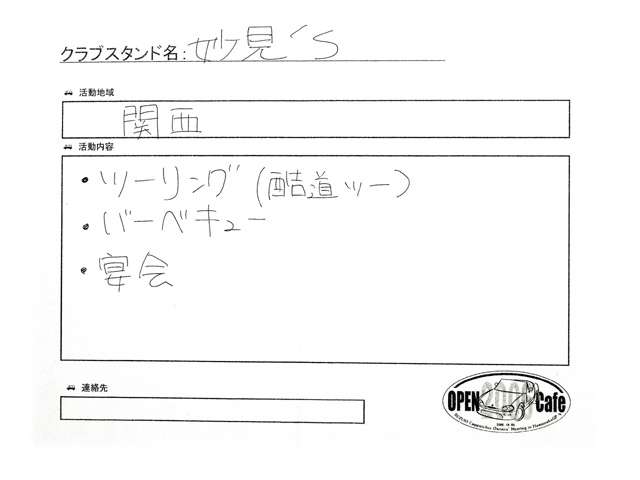 クラブスタンド名: 妙見's
活動地域
関西
活動内容
・ツーリング(酷道ツー)
・バーベキュー
・宴会
連絡先
OPEN Cafe